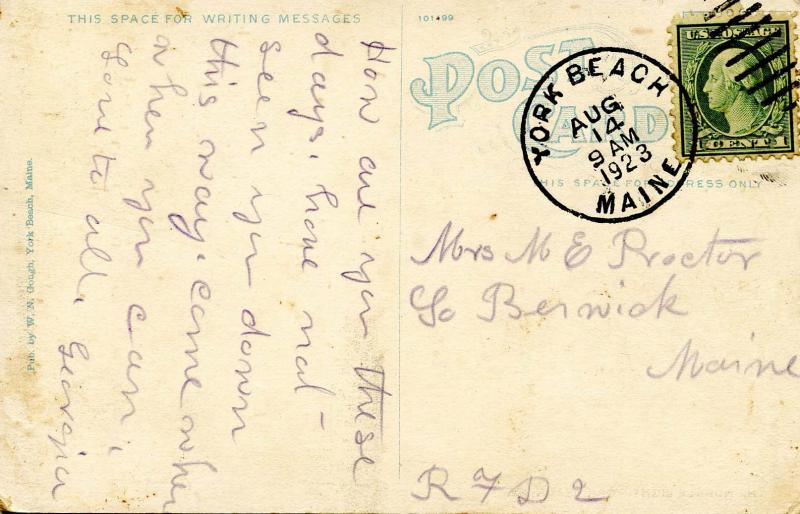 THIS SPACE FOR WRITING MESSAGES
101499
POST
CARD
U.S. POSTAGE
1 CENT 1
YORK BEACH
AUG
14
9 AM
1923
MAINE
THIS SPACE FOR ADDRESS ONLY
How are you these
days, have not
seen you down
this way. come when
when you can,
Love to all, Georgia
Mrs M E Proctor
So Berwick
Maine
R F D 2
Pub. by W. N. Gough, York Beach, Maine.